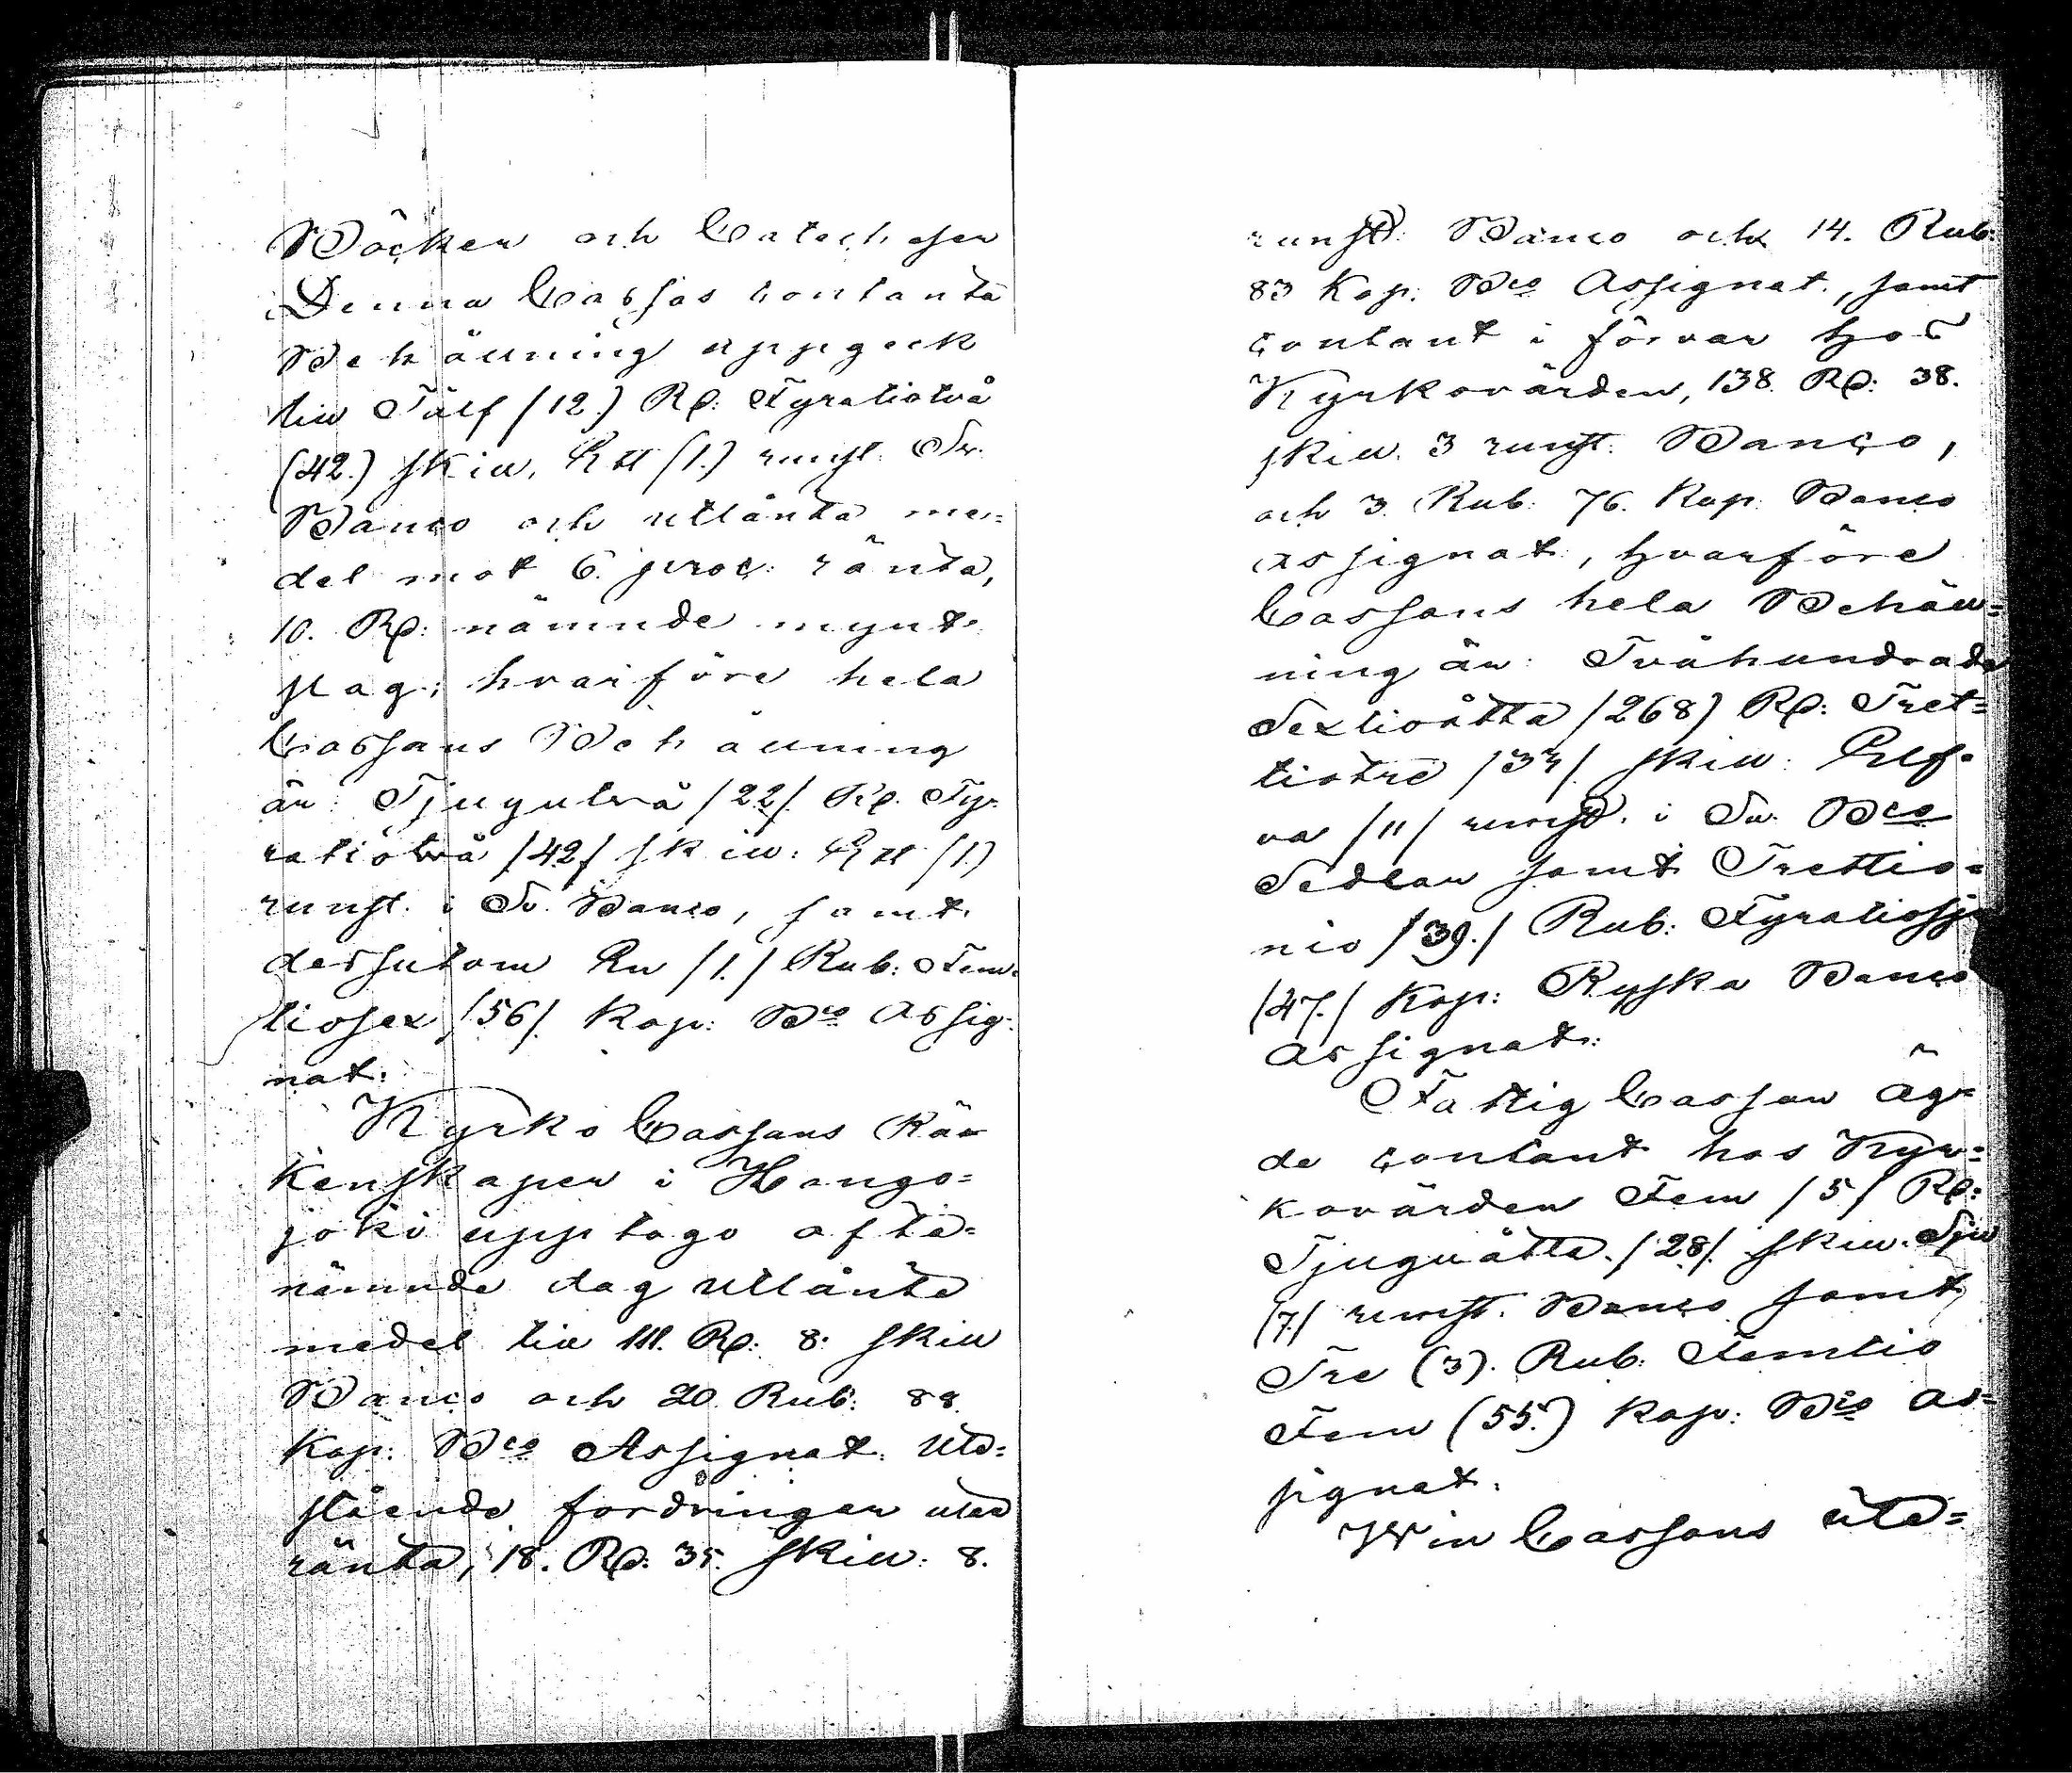 Böcker och Catecheser
Denna Cassas contanta
Behållning uppgeck
till Tålf /12.) Rd: Fyratiotvå
(42.) skill. Ett /1.) runst. Sv.
Banco och utlånta me=
del mot 6. proc: ränta,
10. Rd: nämnde mynt
slag; hvarföre hela
Cassans Behållning
är: Tjugutvå /22/. Rd. Fyr=
ratiotvå /42/ skill: Ett /1.)
runst. i Sv. Banco, samt
dessutom En /1./ Rub: Fem=
tiosex /56/. kop: Bco Assig=
nat.
Kyrko Cassans Rä=
kenskaper i Hongo=
joki upptogo ofta=
nämnde dag utlånte
medel till 111. Rd: 8. skill
Banco och 20. Rub: 88.
Kop: Bco Assignat. Ute=
stående fordringar utan
ränta, 18. Rd: 35. skill: 8.
runst: Banco och 14. Rub:
83 Kop: Bco Assignat., samt
contant i förvar hos
Kyrkovärden, 138. Rd: 38.
skill. 3 runst. Banco,
och 3. Rub: 76. Kop: Banco
assignat:, hvarföre
Cassans hela Behåll=
ning är: Tvåhundrade
Sextioåtta /268) Rd: Tret=
tiotre /33/. skill: Elf=
va /11/ runst. i Sv. Bco
Sedlar samt Trettio=
nio /39./ Rub: Fyratiosju
/47./ Kop: Ryska Banco
assignat:
Fattig Cassan äg=
de contant hos Kyr=
kovärden Fem /5/ Rd:
Tjuguåtta /28/. skill. Sju
/7/ runst. Banco samt
Tre (3). Rub: Femtio
Fem (55.) kop: Bco As=
signat.
Vin Cassans ute=